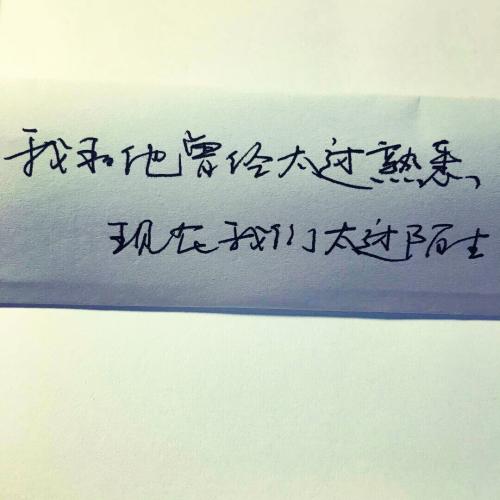 我和他曾经太过熟悉、
现在我们太过陌生